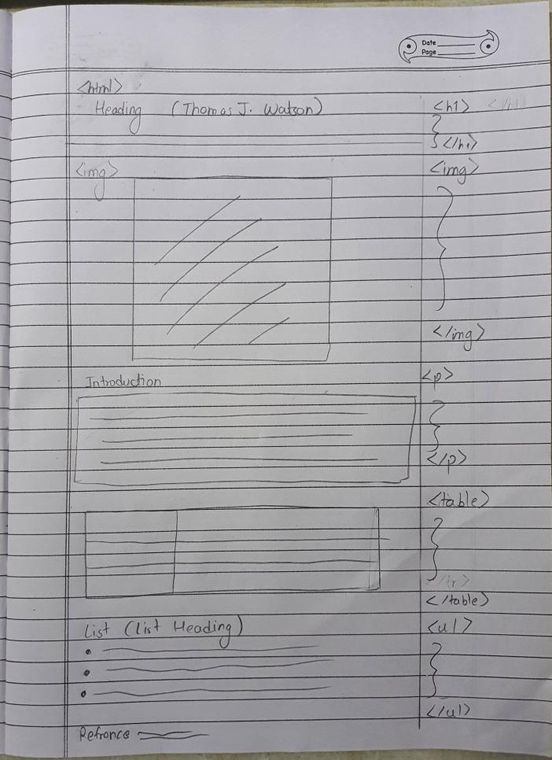 Date
Page
<html>
Heading (Thomas J. Watson) <h1>
</h1>
<img> <img>
</img>
Introduction <p>
</p>
<table>
</tr>
</table>
List (List Heading) <ul>
</ul>
Refrance